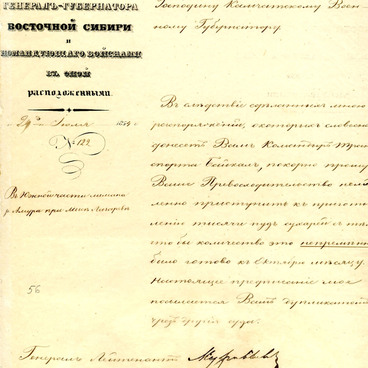 ГЕНЕРАЛЪ-ГУБЕРНАТОРА
ВОСТОЧНОЙ СИБИРИ
и
КОМАНДУЮЩАГО ВОЙСКАМИ
ВЪ ОНОЙ
РАСПОЛОЖЕННЫМИ.
Іюля 1854
№ 122
Въ Южной части лимана
р. Амура при мысѣ Лазарева
56
Господину Камчатскому Воен
ному Губернатору.
Въ слѣдствіе сдѣланныхъ мною
распоряженій, о которыхъ словесно
донесетъ Вамъ Командиръ Тран
спорта Байкалъ, покорно прошу
Ваше Превосходительство
ленно приступить къ пригото
ленію тысячи пудъ сухарей съ
что бы количество это непремѣнно
было готово къ Октябрю мѣсяцу.
Настоящее предписаніе мое
посылается Вамъ дупликатомъ
чрезъ другія суда.
Генералъ Лейтенантъ Муравьевъ